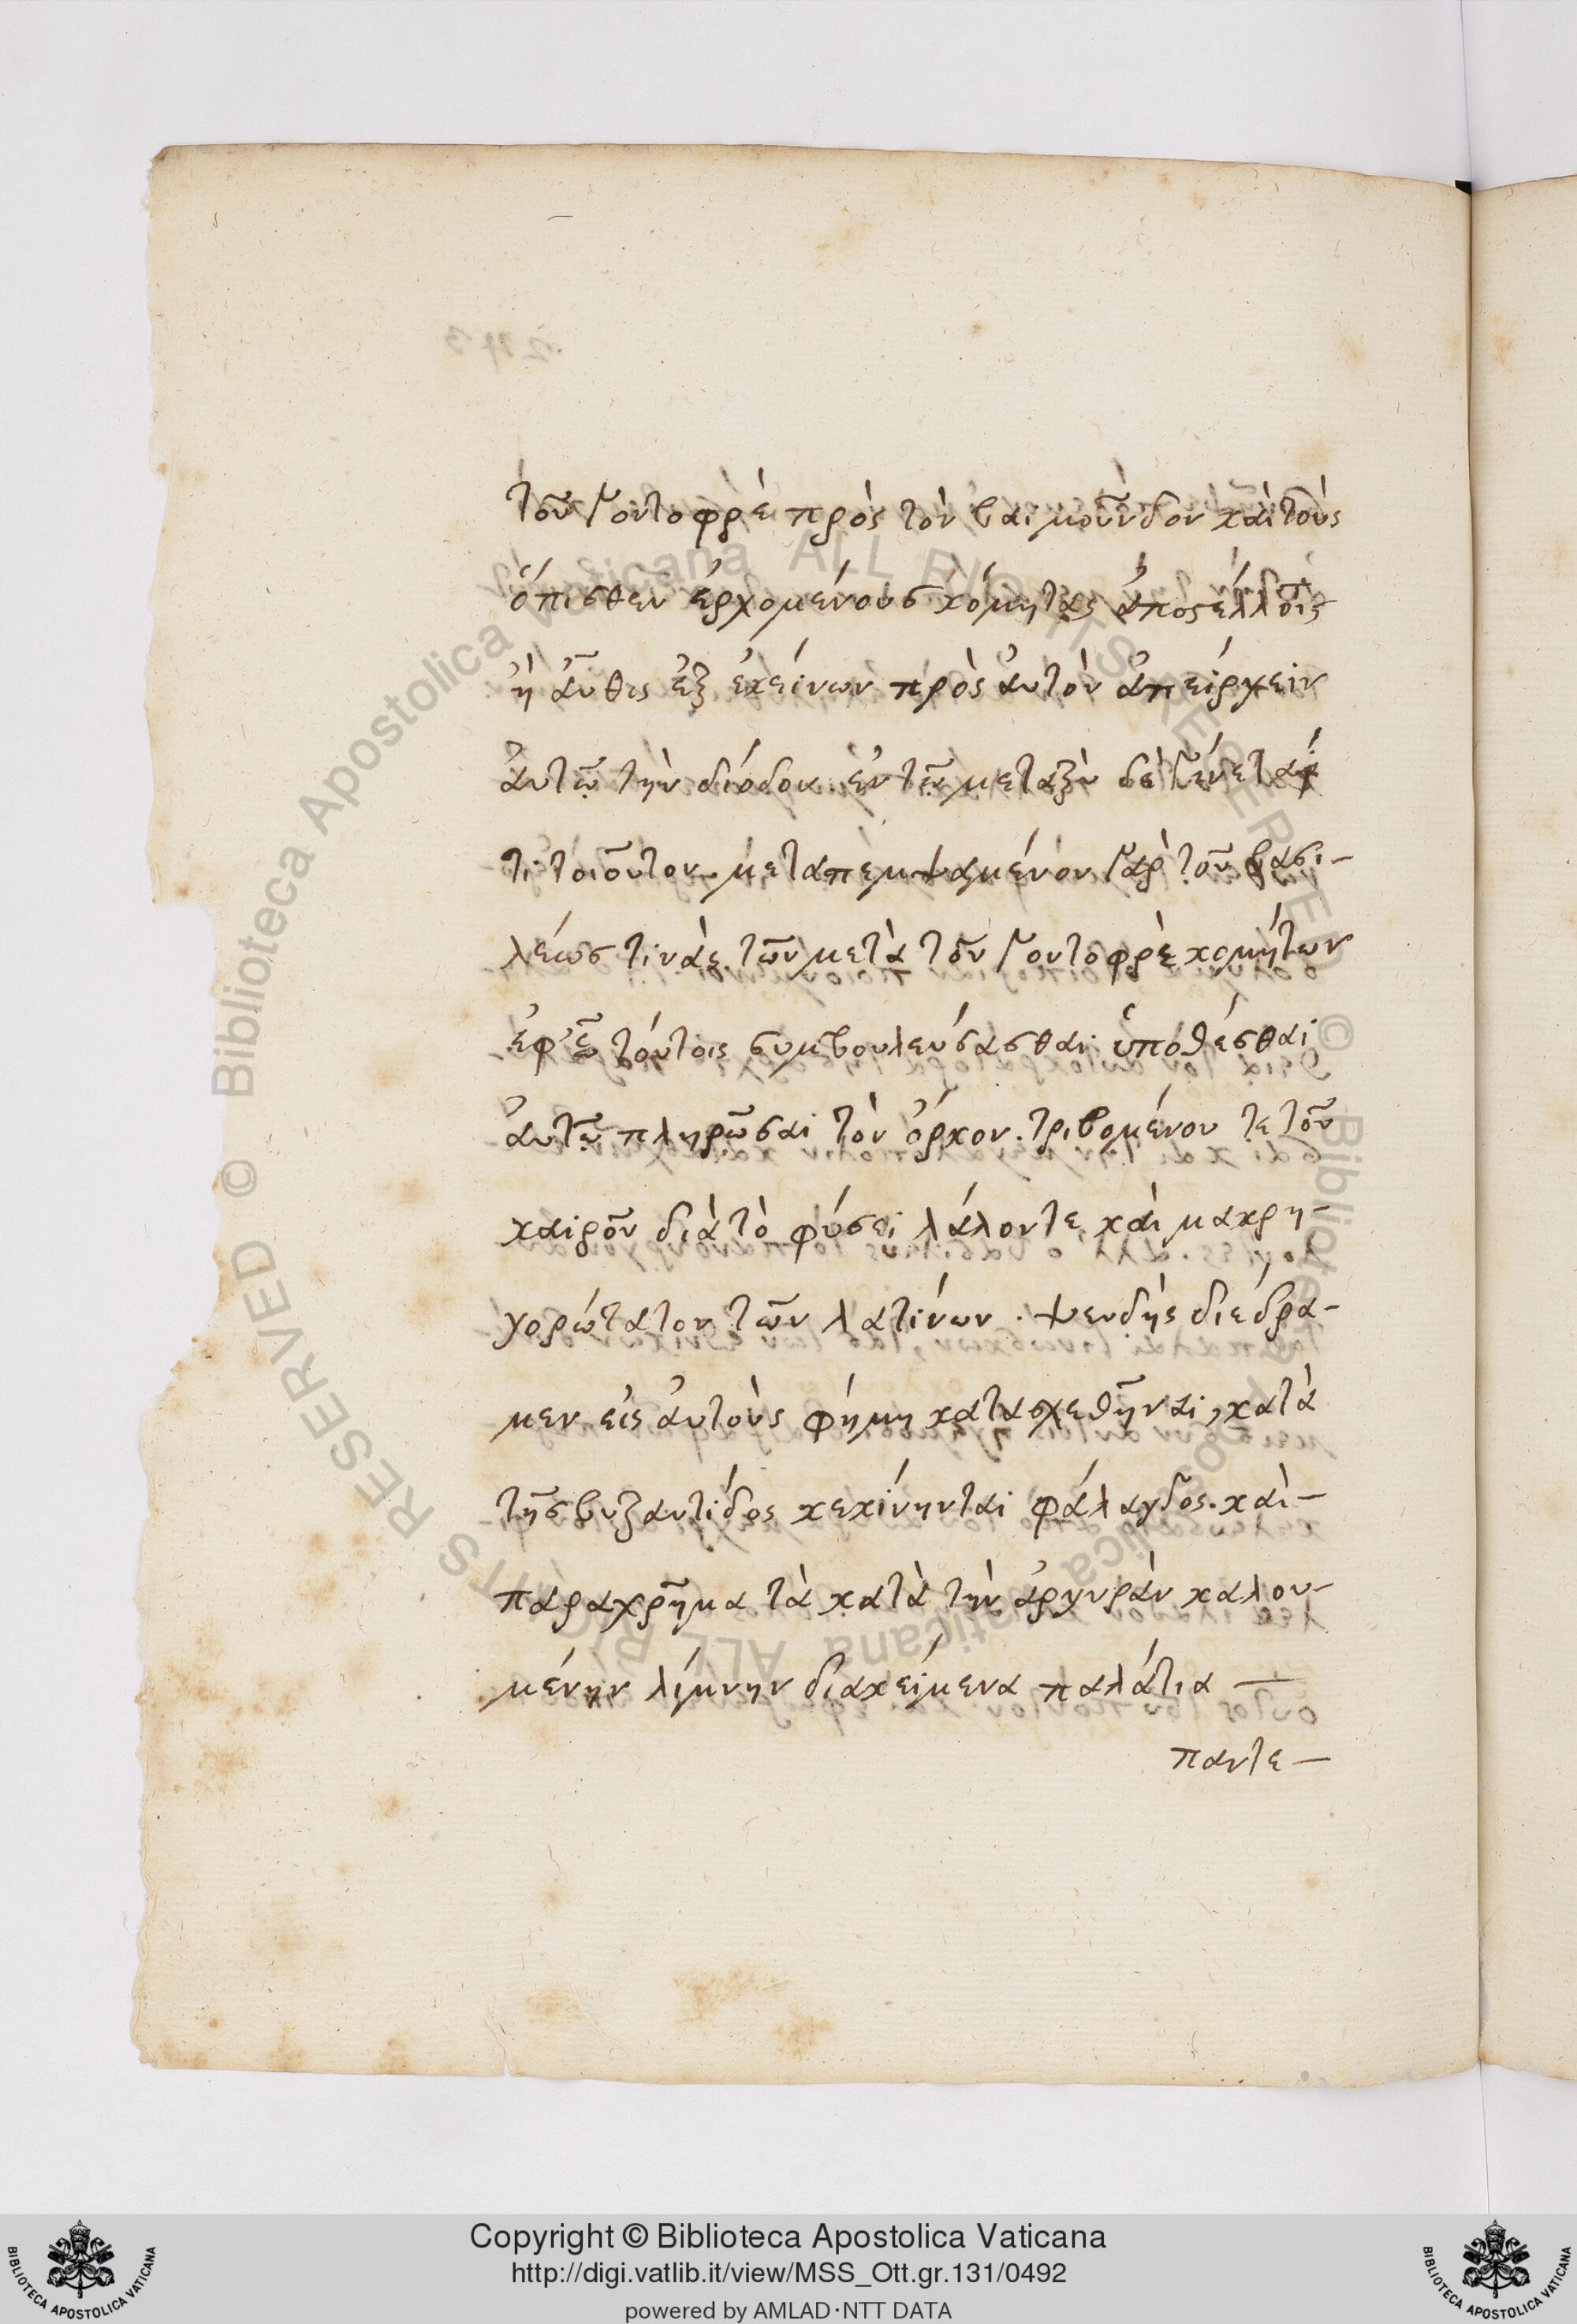 τοῦ Γοντοφρὲ πρὸς τὸν βαϊμοῦνδον καὶ τοὺς
ὄπισθεν ἐρχομένους κόμητας ἀποστέλλοις
ἢ αὖθις ἐξ ἐκείνων πρὸς αὐτὸν ἀπείργειν
αὐτῷ τὴν δίοδον. ἐν τῷ μεταξὺ δὲ γίνεταί
τι τοιοῦτον. μεταπεμψαμένου γὰρ τοῦ βασι-
λέως τινὰς τῶν μετὰ τοῦ Γοντοφρὲ κομήτων
ἐφ' ᾧ τούτοις συμβουλεύσασθαι ὑποθέσθαι
αὐτῷ πληρῶσαι τὸν ὅρκον. τριβομένου τε τοῦ
καιροῦ διὰ τὸ φύσει λάλον τε, καὶ μακρη-
γορώτατον τῶν λατίνων. ψευδὴς διέδρα-
μεν εἰς αὐτοὺς φήμη κατασχεθῆναι, κατὰ
τῆς βυζαντίδος κεκίνηνται φάλαγγος. καὶ-
παραχρῆμα τὰ κατὰ τὴν ἀργυρὰν καλου-
μένην λίμνην διακείμενα παλάτια —
παντε-
Copyright © Biblioteca Apostolica Vaticana
http://digi.vatlib.it/view/MSS_Ott.gr.131/0492
powered by AMLAD·NTT DATA
BIBLIOTECA APOSTOLICA VATICANA
BIBLIOTECA APOSTOLICA VATICANA
© Biblioteca Apostolica Vaticana ALL RIGHTS RESERVED
© Biblioteca Apostolica Vaticana ALL RIGHTS RESERVED